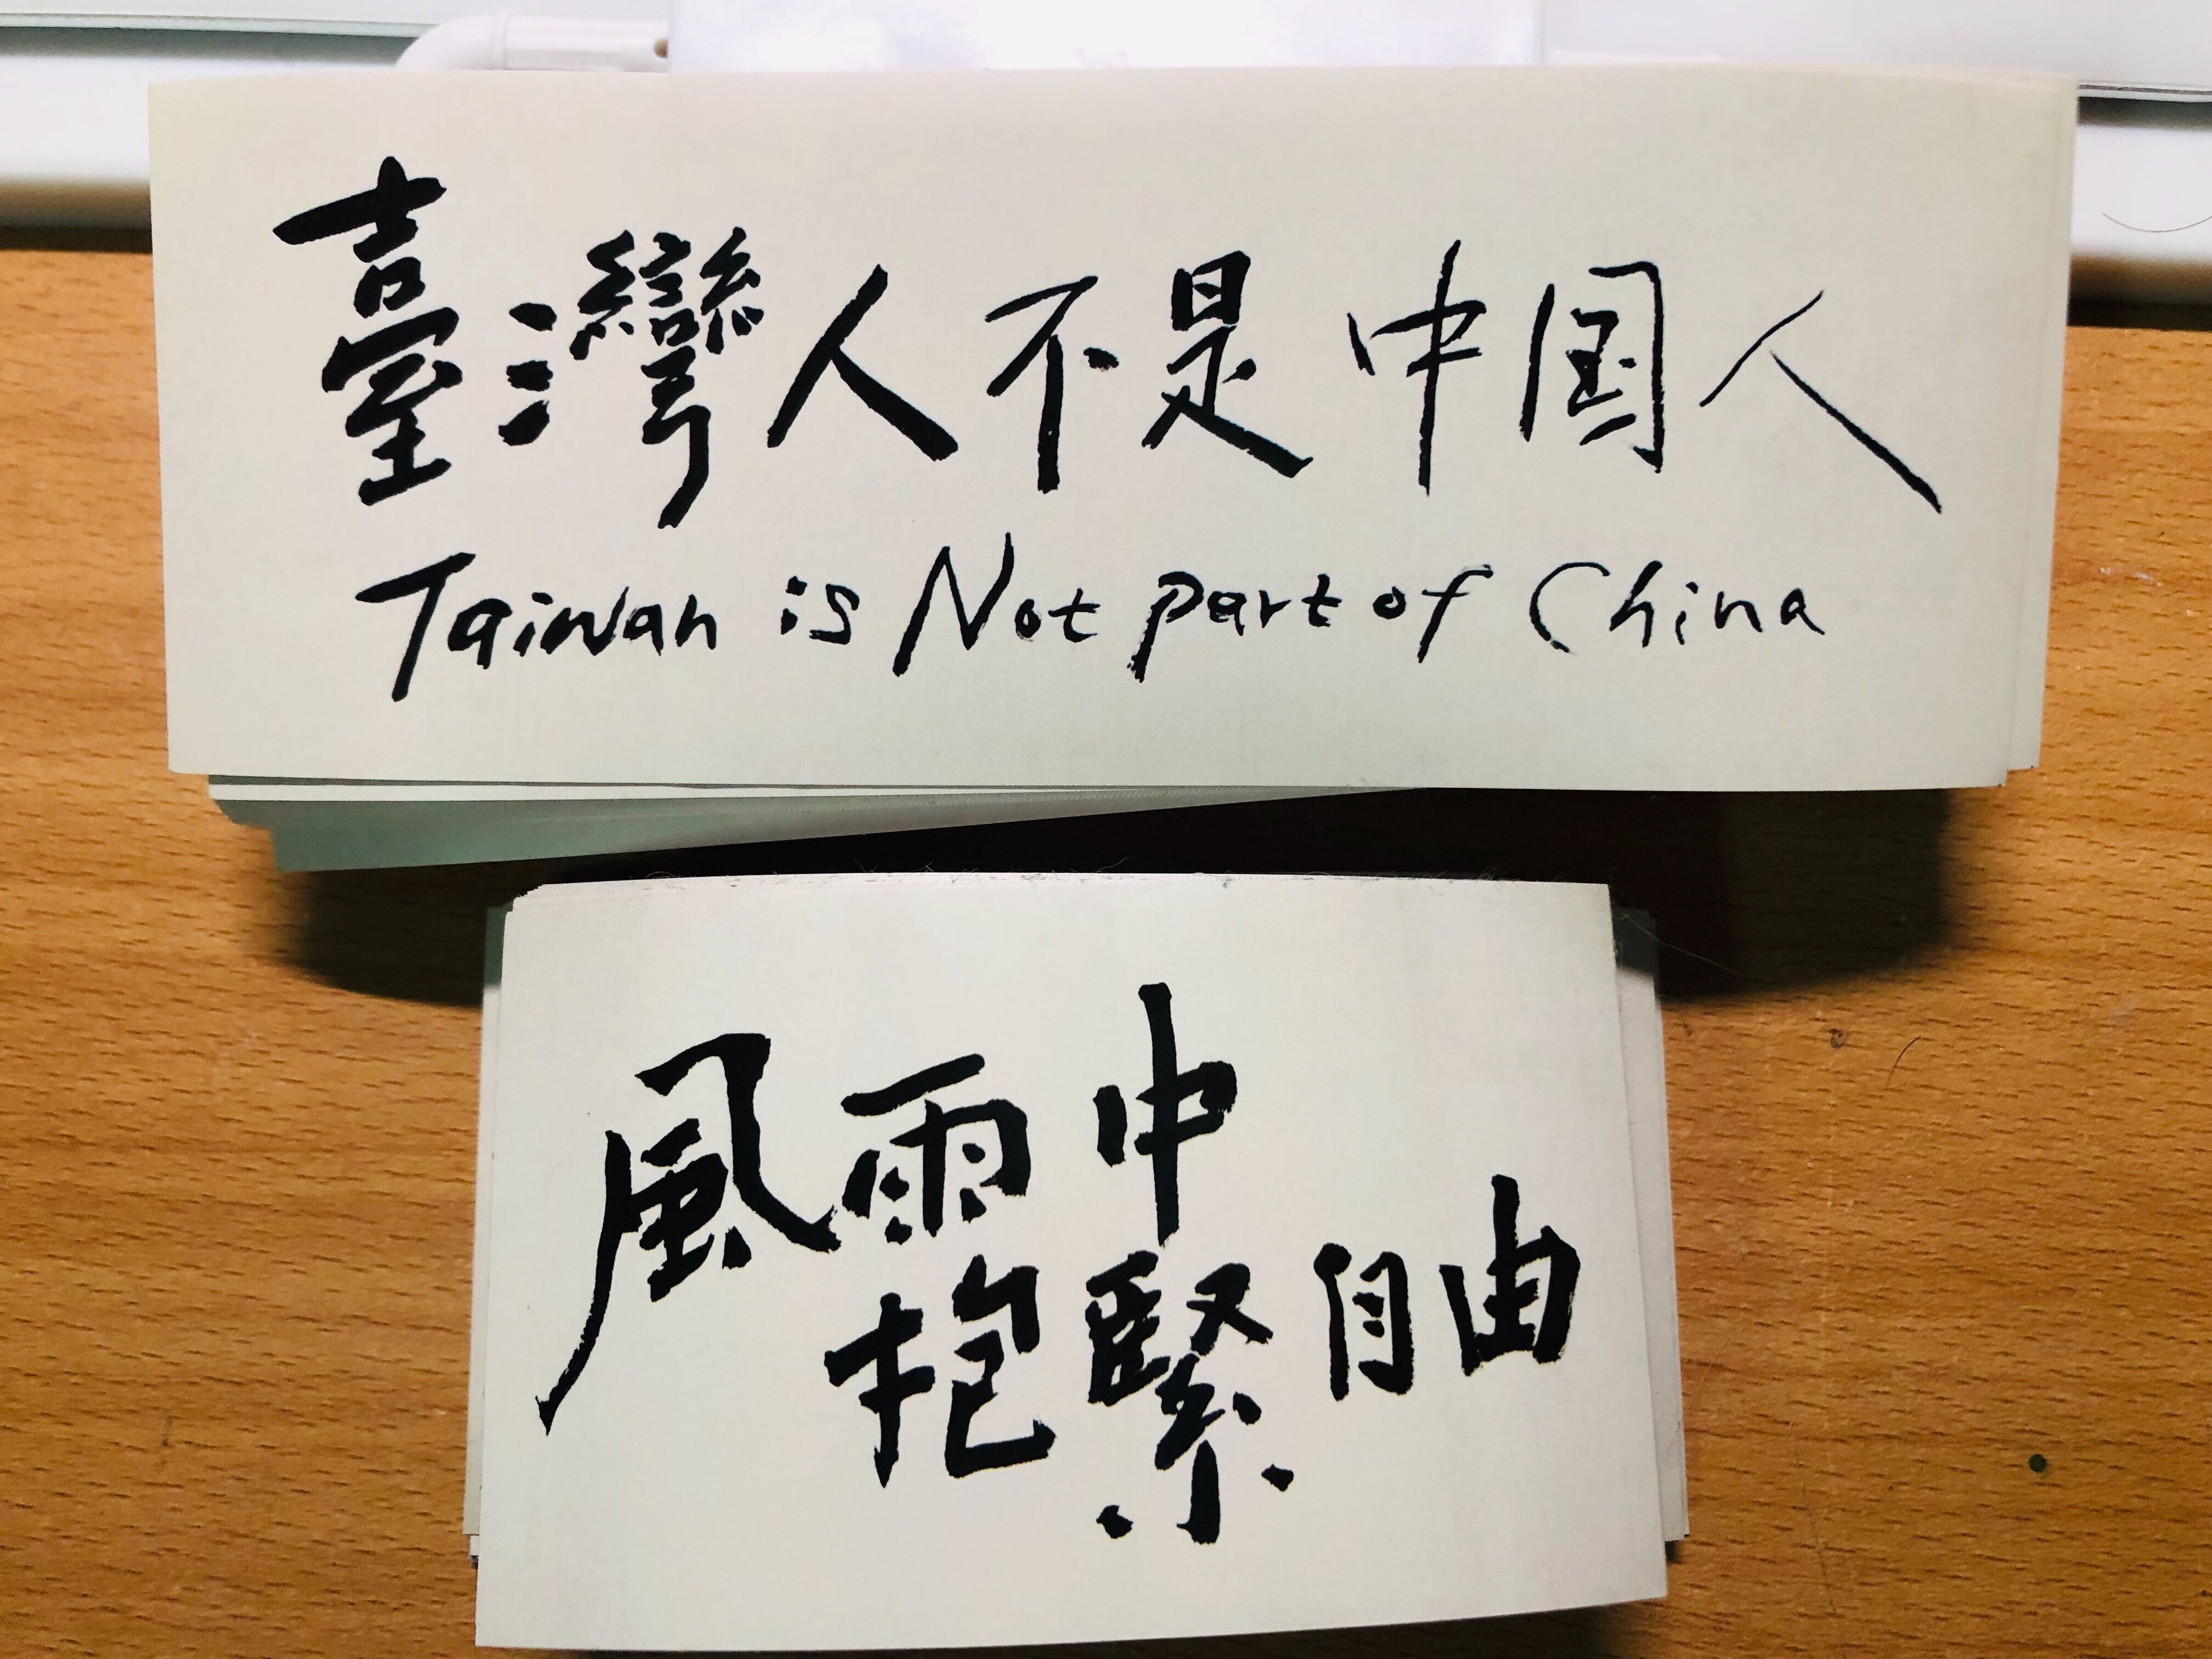 臺灣人不是中国人
Taiwan is Not part of China
風雨中
抱緊自由